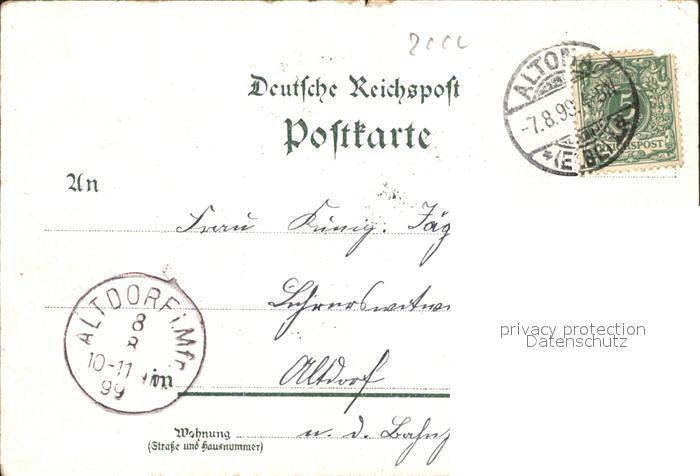 Deutsche Reichspost
Postkarte
ALTONA
-7.8.99.
*(ELBE)
REICHSPOST
An
Frau Kunig. Jäg
Lehrerswitwe
ALTDORF i. Mfr.
8
8
10-11
99
in Altdorf
privacy protection
Datenschutz
Wohnung
(Straße und Hausnummer)
u. d. Bahn